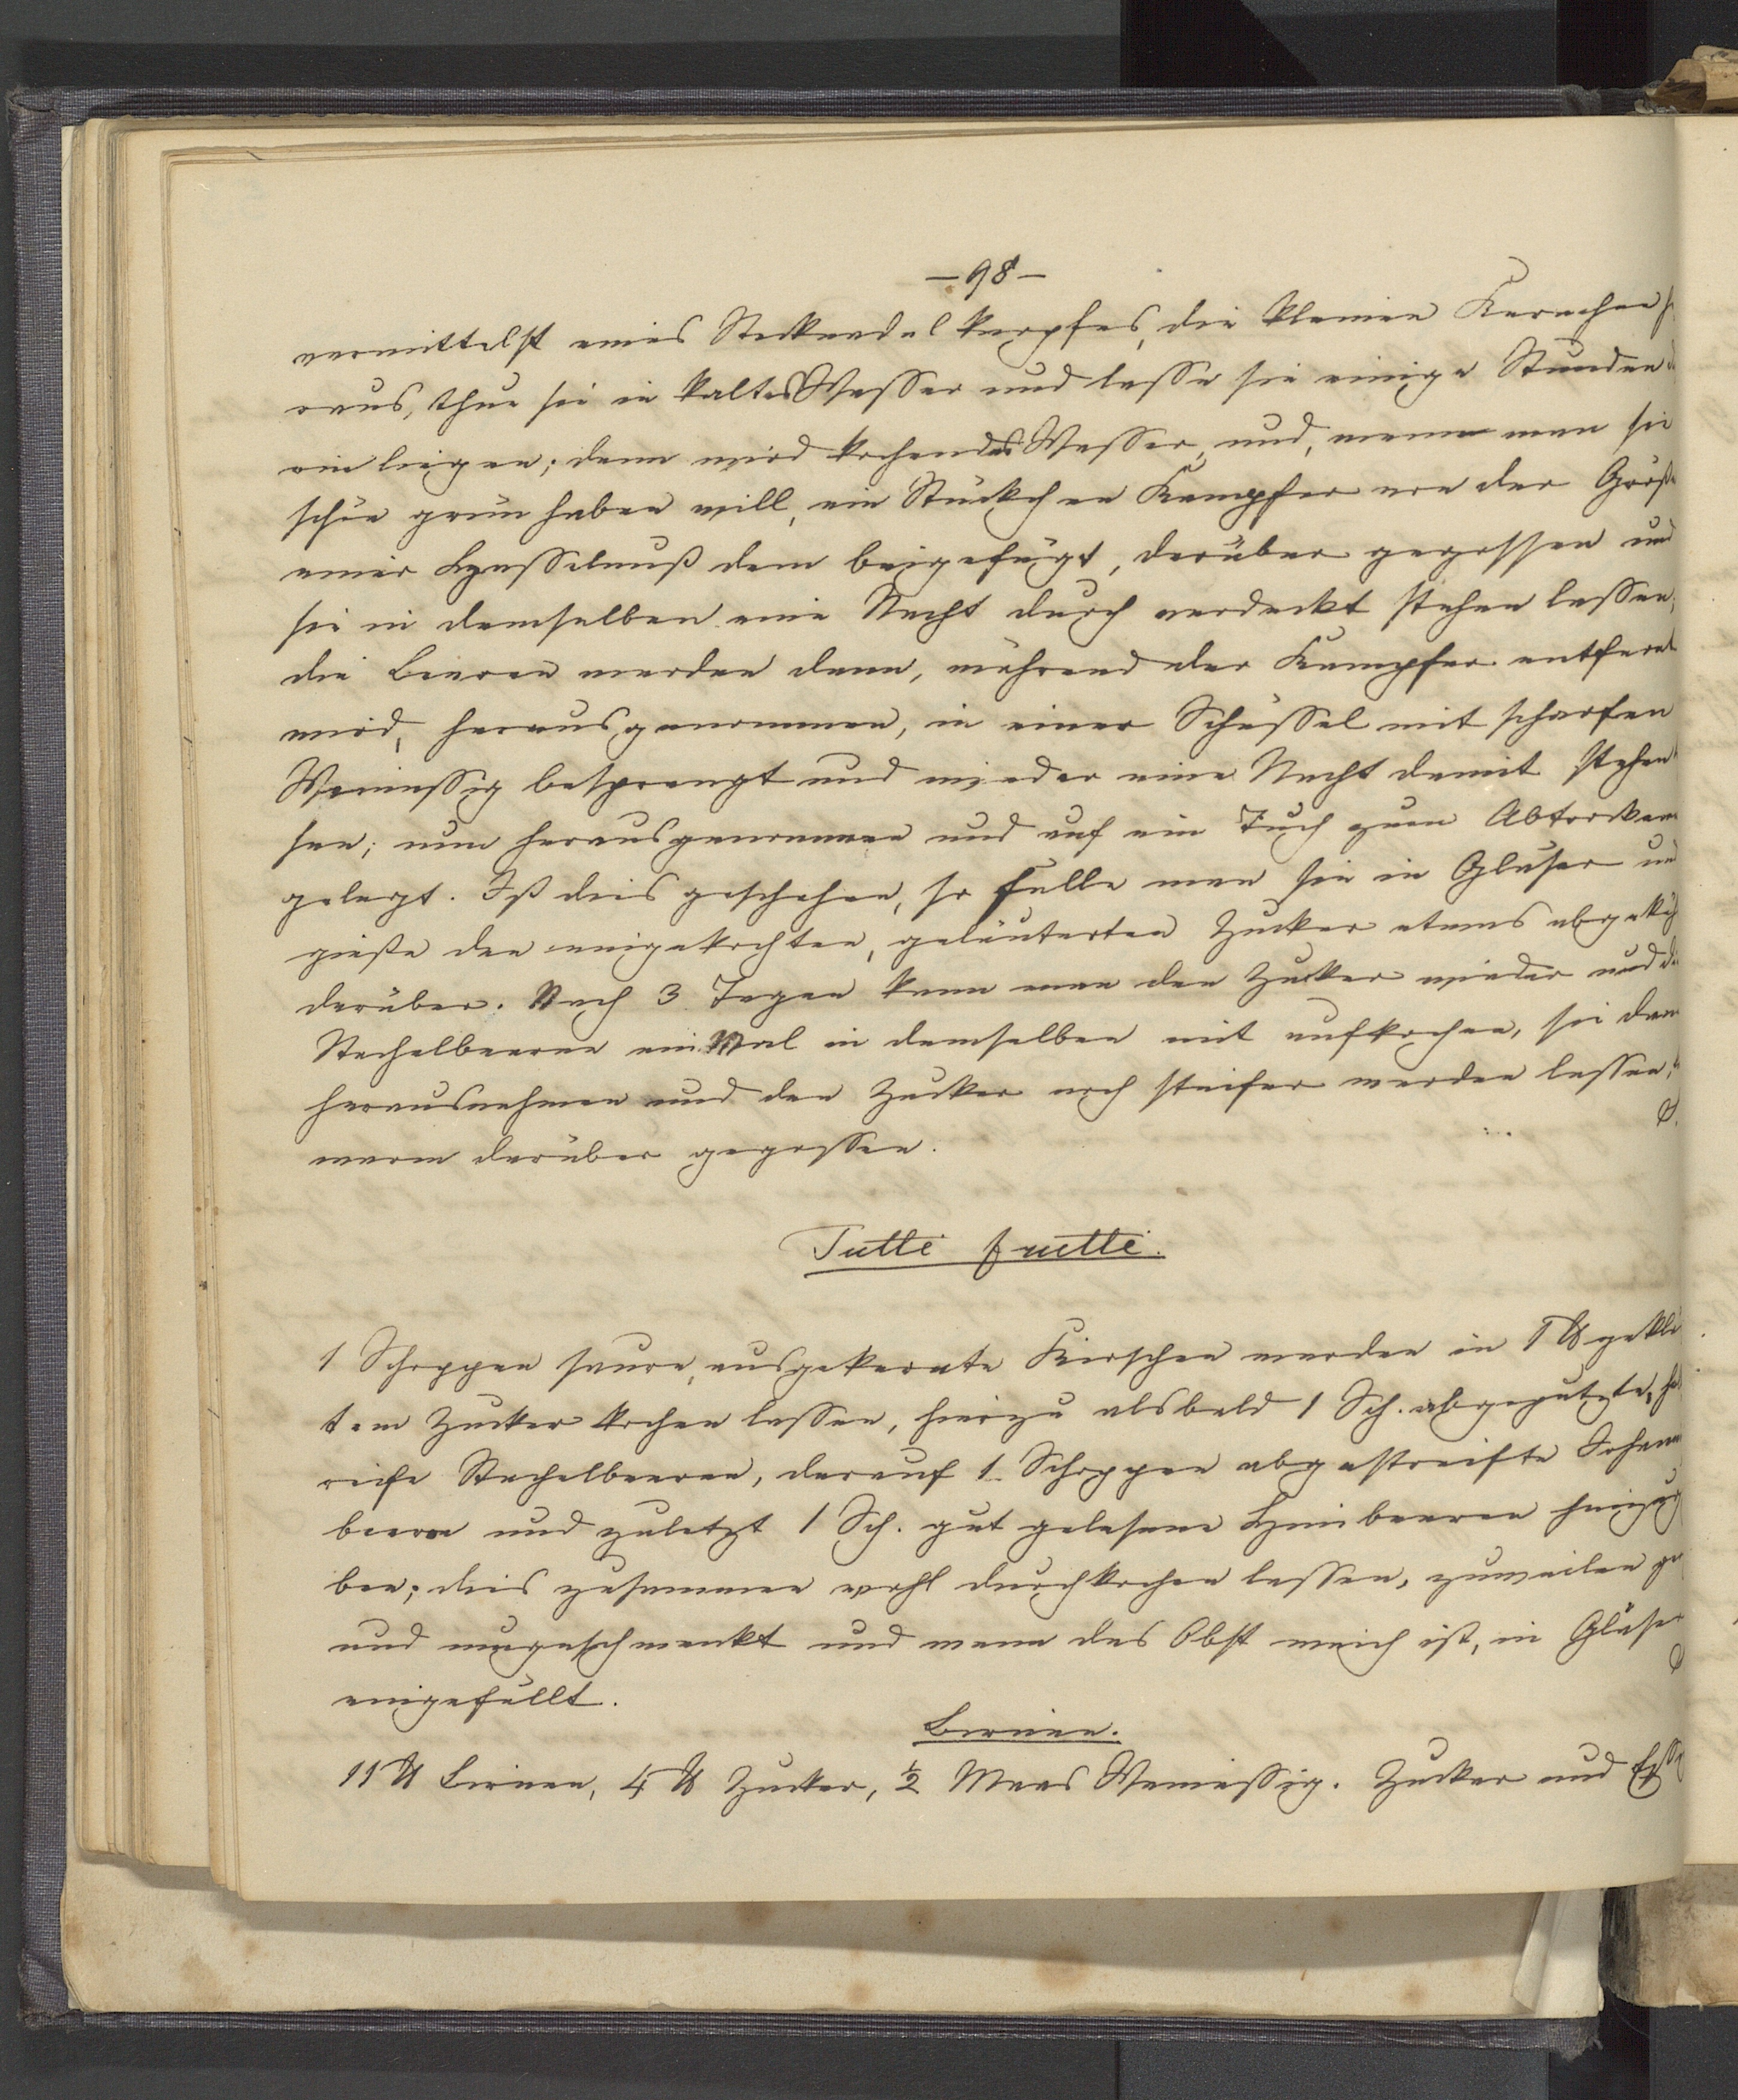 — 98 —
vermittelst eines Stecknadelknopfes, die kleinen Kernchen h
raus, thue sie in kaltes Wasser und lasse sie einige Stunden d
rin liegen; dann wird kochendes Wasser, und, wenn man sie
schön grün haben will, ein Stückchen Kampfer von der Größe
einer Hasselnuß dem beigefügt, darüber gegossen und
sie in demselben eine Nacht durch verdeckt stehen lassen;
die Beeren werden dann, während der Kampfer entfernt
wird, herausgenommen, in einer Schüssel mit scharfen
Weinessig besprengt und wieder eine Nacht damit stehen
sen; nun herausgenommen und auf ein Tuch zum Abtrocknen
gelegt. Ist dies geschehen, so fülle man sie in Gläser und
gieße den eingekochten, geläuterten Zucker etwas abgeküh
darüber. Nach 3 Tagen kann man den Zucker wieder und di
Stachelbeeren ein Mal in demselben mit aufkochen, sie dann
herausnehmen und den Zucker noch steifer werden lassen,
warm darüber gegossen.
Tutti frutti.
1 Schoppen saure, ausgekernte Kirschen werden in 1 ℔ geklä
tem Zucker kochen lassen, hierzu alsbald 1 Sch. abgeputzte, ha
reife Stachelbeeren, darauf 1 Schoppen abgestreifte Johann
beeren und zuletzt 1 Sch. gut gelesene Himbeeren hinzuge
ben; dies zusammen wohl durchkochen lassen, zuweilen ge
und umgeschwenkt und wenn das Obst weich ist, in Gläser
eingefüllt.
Birnen.
11 ℔ Birnen, 4 ℔ Zucker, ½ Maas Weinessig. Zucker und Essi